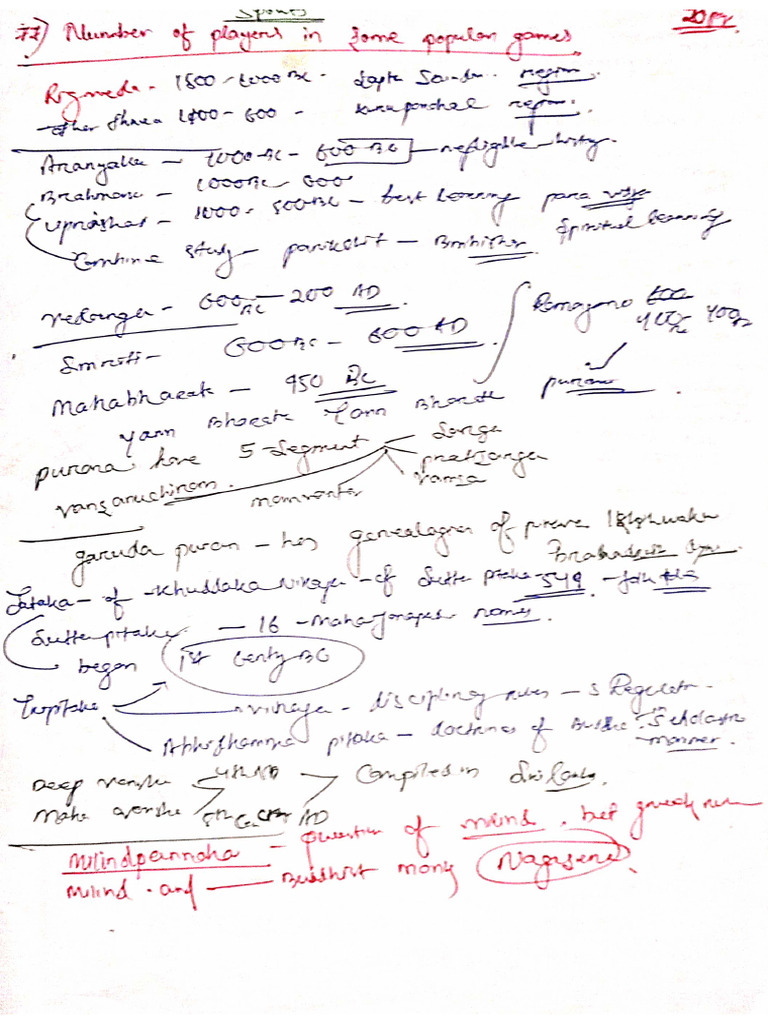 Sports
Number of players in some popular games
Rigveda - 1500 - 1000 BC - Sapta Saindu region.
other 1000 - 600 - Kurupanchal region.
Aranyaka - 1000 BC - 600 BC - negligible history.
Brahmana - 1000 BC - 600
Upnishad - 1000 - 500 BC - best learning para vidya
Combine Study - parikshit - Bimbisar Spiritual learning
Vedanga - 600 BC - 200 AD
Smriti - 600 BC - 600 AD
Ramayana 400 BC 400
Mahabharat - 950 BC purana
Bharata Bharata
purana have 5 - Segment Sarga
pratisarga
vansanucharitam. manvantar Vamsa
garuda puran - has genealogies of Ikshwaku
Jataka - of Khuddaka Nikaya - of Sutta pitaka - 549 - folk tales
Sutta pitaka - 16 - Mahajanapad names.
began 1st Century BC
Tripitaka vinaya - disciplinary rules - s Regulatr.
Abhidhamma pitaka - doctrines of Buddha in Scholastic manner.
Deep vansha 4th AD Compiled in Sri Lanka.
Maha vansha 5th AD
Milindpannaha - question of milind. bet greek
Milind and Buddhist monk Nagsena